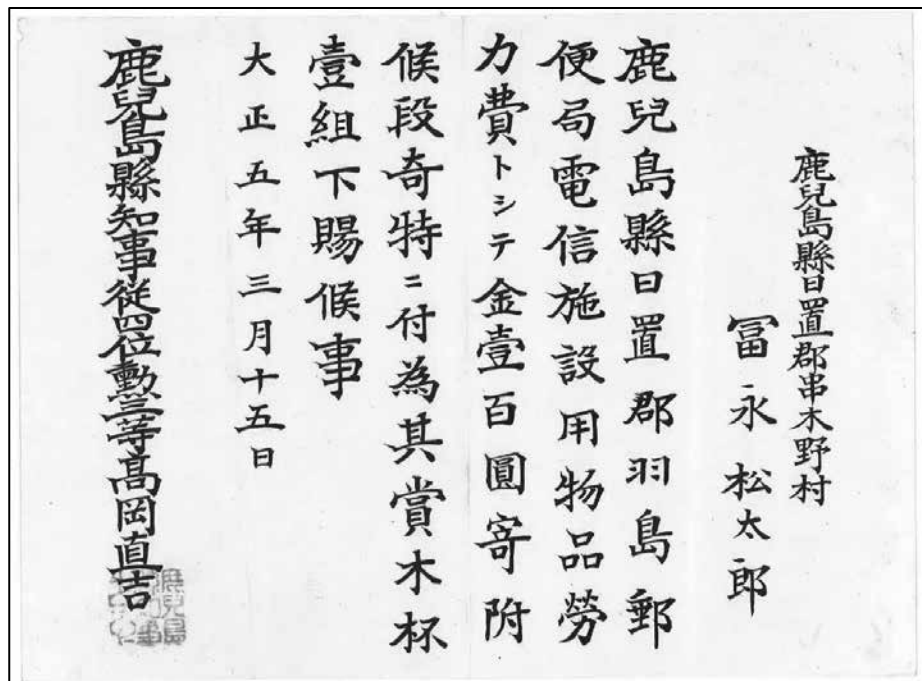 鹿兒島縣日置郡串木野村
冨永松太郎
鹿兒島縣日置郡羽島郵
便局電信施設用物品勞
力費トシテ金壹百圓寄附
候段奇特ニ付為其賞木杯
壹組下賜候事
大正五年三月十五日
鹿兒島縣知事從四位勳三等高岡直吉